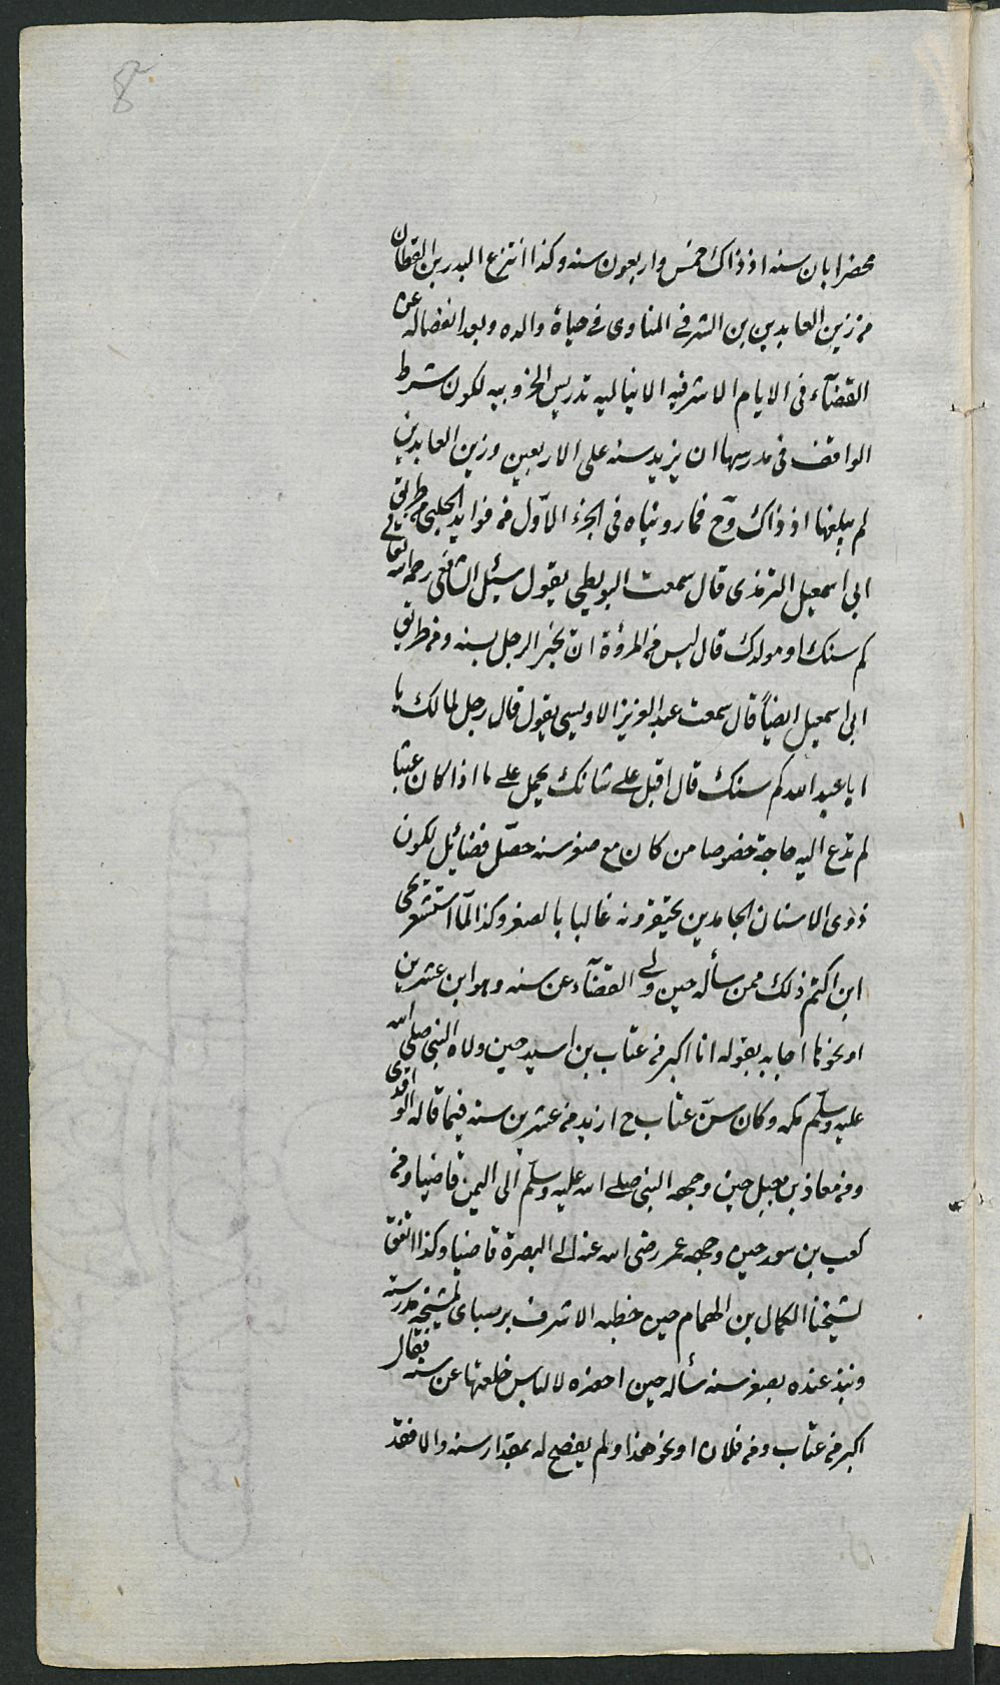 8
محضرا بان سنه اذ ذاك خمس واربعون سنه وكذا انتزع البدر بن القطان
من زين العابدين بن الشرفي المناوى في حياة والده وبعد انفصاله عن
القضآء فى الايام الاشرفيه الاينا ليه تدريس الخروبيه لكون شرط
الواقف فى مدرسها ان يزيد سنه على الاربعين وزين العابدين
لم يبلغها اذ ذاك وح فما رويناه فى الجزء الاول من فوايد الحلبي من طريق
ابى اسمعيل الترمذى قال سمعت البويطي يقول سئل الشافعى رحمه الله تعالى
كم سنك او مولدك قال ليس من المرؤة ان يخبر الرجل بسنه ومن طريق
ابى اسمعيل ايضاً قال سمعت عبد العزيز الاويسي يقول قال رجل لمالك يا
ابا عبد الله كم سنك قال اقبل على شانك يحمل على ما اذا كان عبثا
لم تدع اليه حاجة خصوصا من كان مع صغر سنه حصّل فضائل لكون
ذوى الاسنان الجامدين يحتقرونه غالبا بالصغر وكذا لمّا استشعر يحيى
ابن اكثم ذلك ممن سأله حين ولى القضآء عن سنه وهو ابن عشرين
او نحوها اجابه بقوله انا اكبر من عتاب بن اسيد حين ولاه النبى صلى الله
عليه وسلّم مكه وكان سنّ عتاب ح ازيد من عشرين سنه فيما قاله الواقدى
ومن معاذ بن جبل حين وجهه النبى صلى الله عليه وسلّم الى اليمن قاضيا ومن
كعب بن سور حين وجهه عمر رضى الله عنه الى البصرة قاضيا وكذا اتفق
لشيخنا الكمال بن الهمام حين خطبه الاشرف برسباى لمشيخة مدرسته
ونبذ عنده بصغر سنه سأله حين احضره لالباس خلعتها عن سنه فقال
اكبر من عتاب ومن فلان او نحو هذا ولم يفصح له بمقدار سنه والا فقد